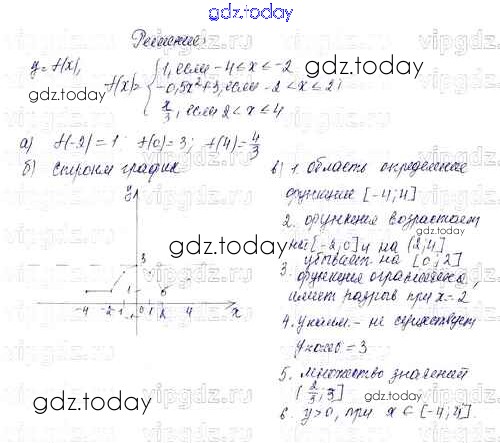 gdz.today
Решение:
y = f(x),
f(x) = { 1, если -4 ≤ x ≤ -2
-0,5x² + 3, если -2 < x ≤ 2
x/3, если 2 < x ≤ 4
gdz.today
а) f(-2) = 1 f(0) = 3; f(4) = 4/3
б) строим график
в) 1. область определения
функции [-4; 4]
2. функция возрастает
на [-2, 0] и на (2; 4]
убывает на [0; 2]
3. функция ограничена,
имеет разрыв при x = 2
4. yнаим. – не существует
yнаиб = 3
5. множество значений
(2/3; 3]
6. y > 0, при x ∈ [-4; 4].
y
3
1
-4 -2 -1 0 1 2 4 x
gdz.today
gdz.today
gdz.today
gdz.today